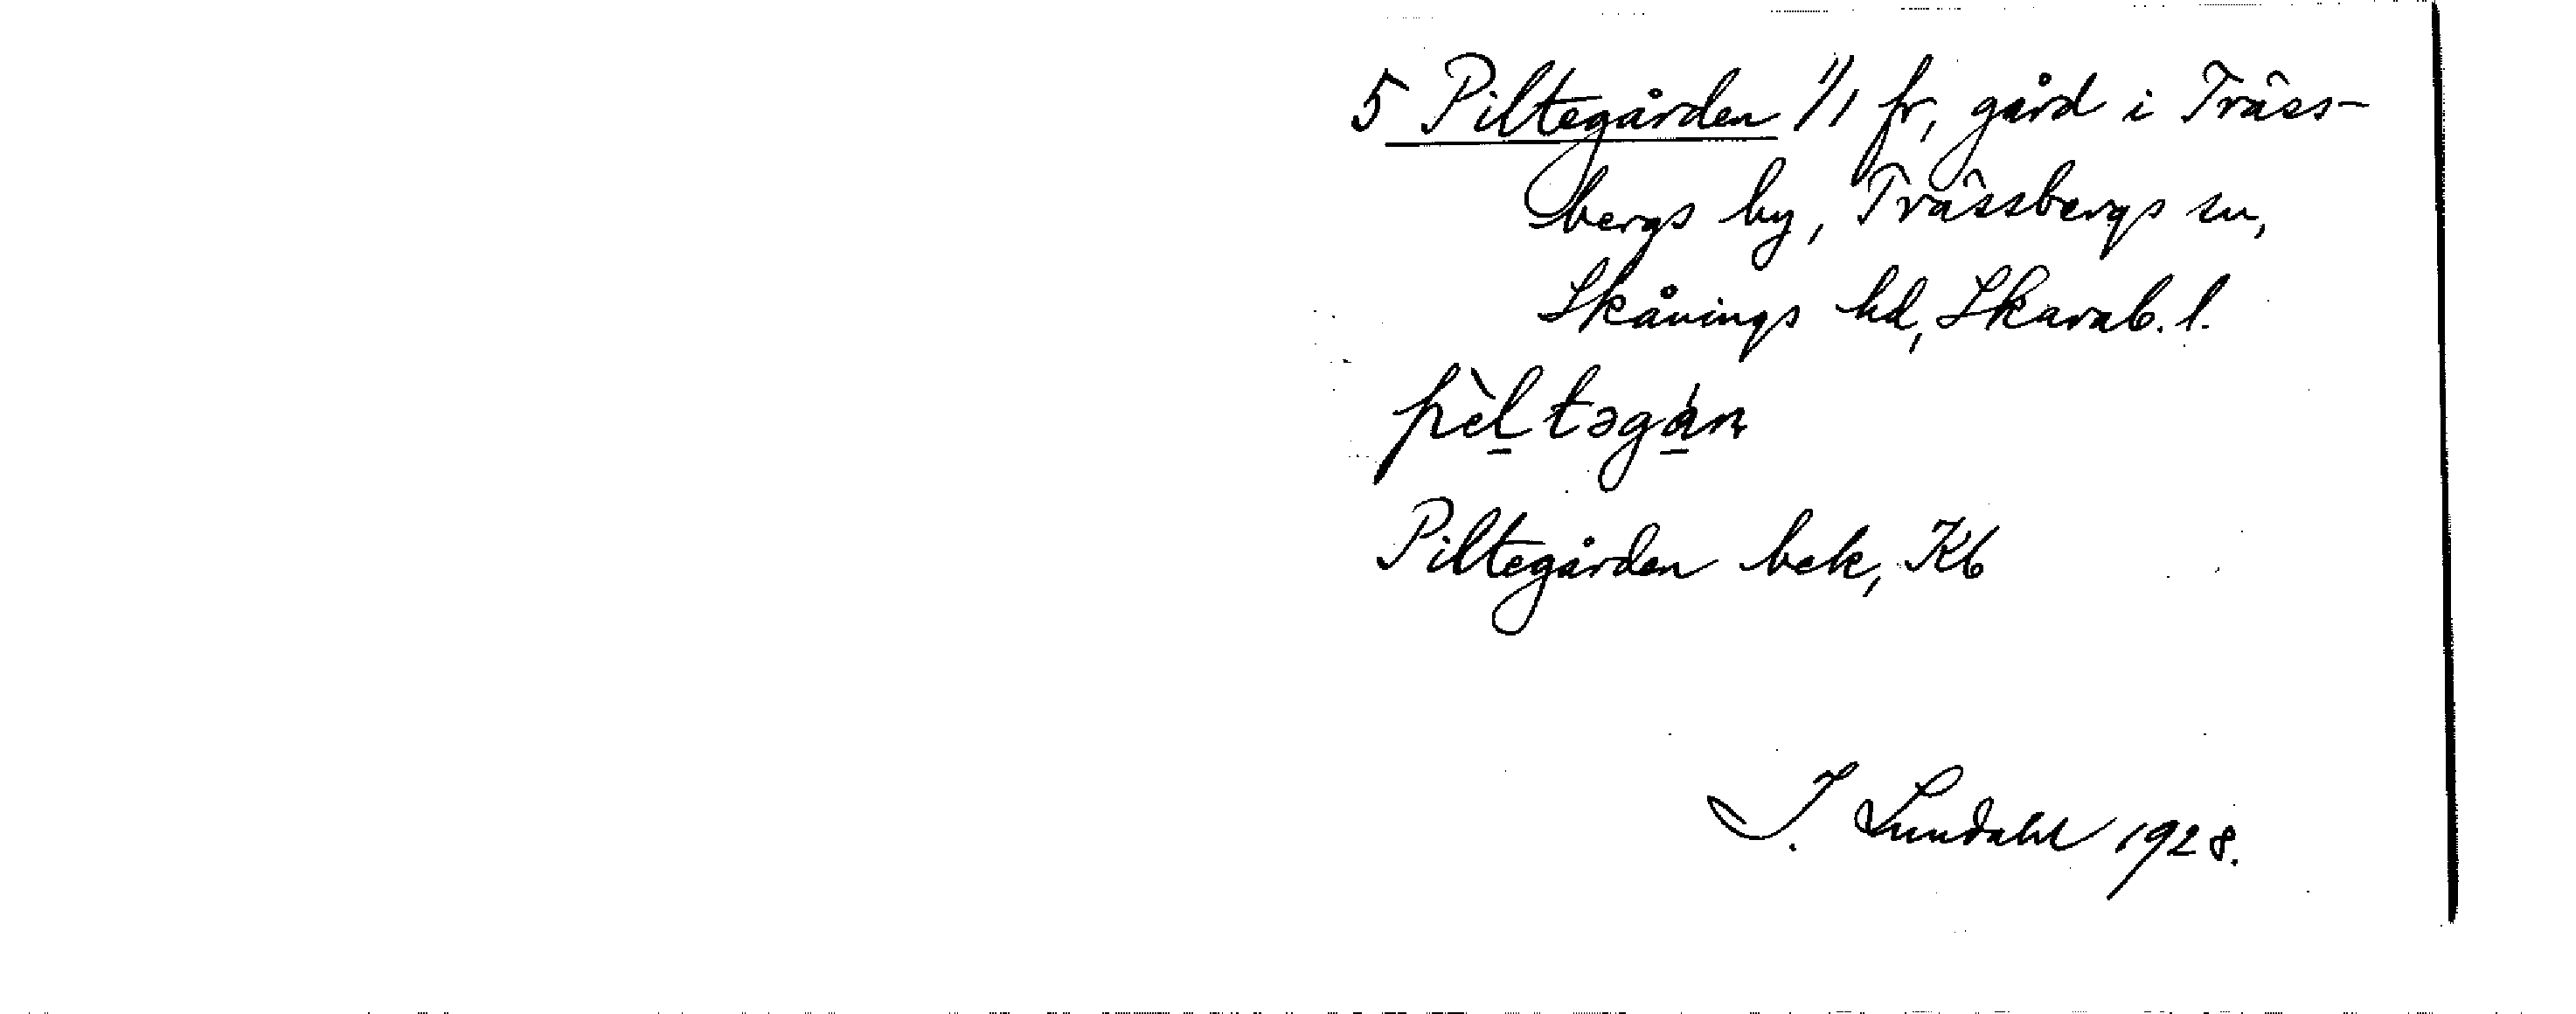 5 Piltegården 1/1 fr, gård i Träss-
bergs by, Trässbergs sn,
Skånings hd, Skarab. l.
pèl̠təgá̠n
Piltegården bek, Kb
I. Lundahl 1928.